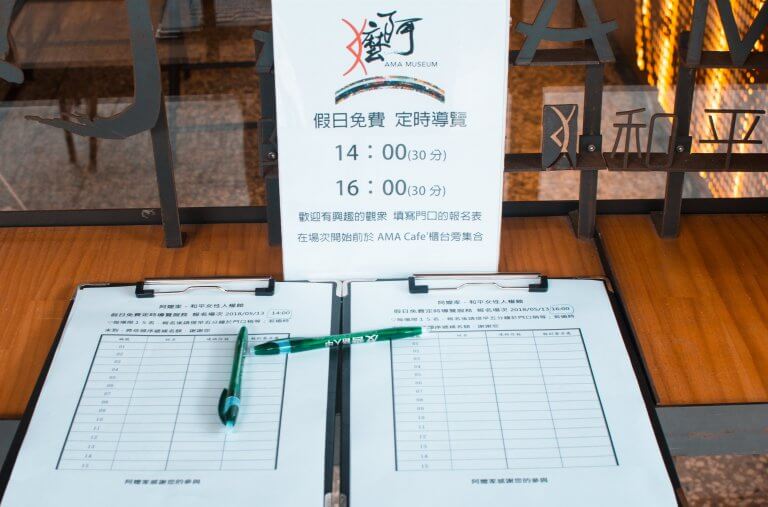 阿嬤
AMA MUSEUM
假日免費 定時導覽
14：00(30 分)
16：00(30 分)
歡迎有興趣的觀眾 填寫門口的報名表
在場次開始前於 AMA Cafe'櫃台旁集合
和平
阿嬤家-和平女性人權館
假日免費定時導覽服務 報名場次 2018/05/13 14:00
01
02
03
04
05
06
07
08
09
10
11
12
13
14
15
阿嬤家感謝您的參與
阿嬤家-和平女性人權館
假日免費定時導覽服務 報名場次 2018/05/13 16:00
01
02
03
04
05
06
07
08
09
10
11
12
13
14
15
阿嬤家感謝您的參與